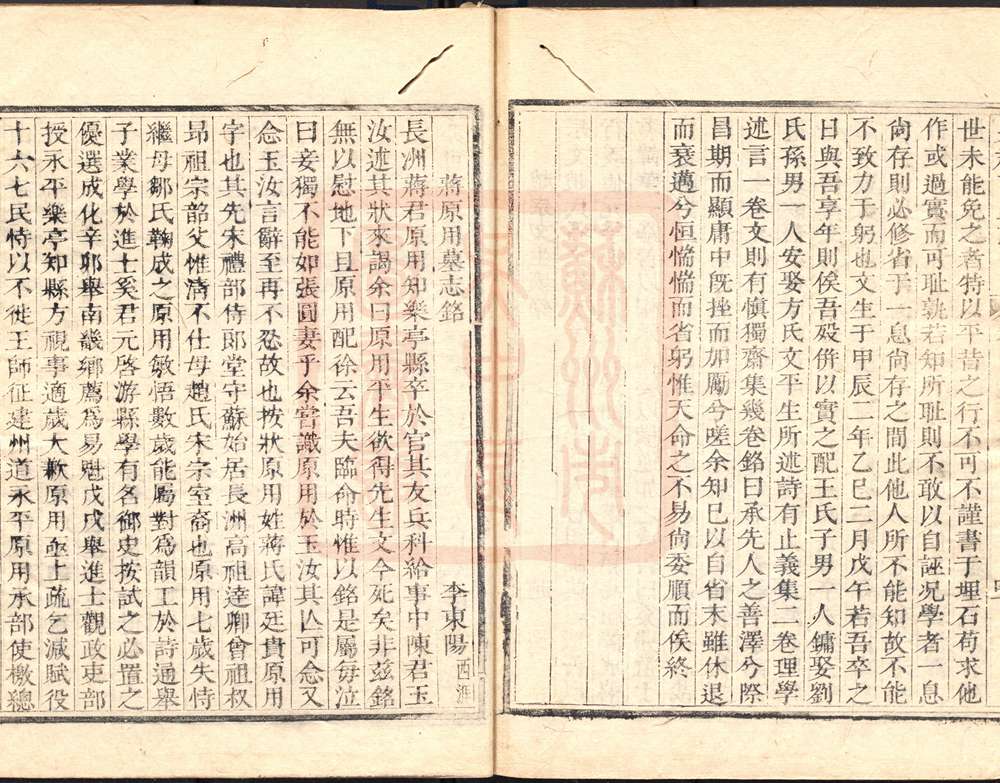 世未能免之者特以平昔之行不可不謹書于埋石苟求他
作或過實而可耻孰若知所耻則不敢以自誣况學者一息
尚存則必修省于一息尚存之間此他人所不能知故不能
不致力于躬也文生于甲辰二年乙巳三月戊午若吾卒之
日與吾享年則俟吾殁併以實之配王氏子男一人鏞娶劉
氏孫男一人安娶方氏文平生所述詩有止義集二卷理學
述言一卷文則有慎獨齋集幾卷銘曰承先人之善澤兮際
昌期而顯庸中既挫而加厲兮嗟余知巳以自省末雖休退
而衰邁兮恒惴惴而省躬惟天命之不易尚委順而俟終
蔣原用墓志銘
李東陽 西涯
長洲蔣君原用知樂亭縣卒於官其友兵科給事中陳君玉
汝述其狀來謁余曰原用平生欲得先生文今死矣非兹銘
無以慰地下且原用配徐云吾夫臨命時惟以銘是屬每泣
曰妾獨不能如張圓妻乎余嘗識原用於玉汝其人可念又
念玉汝言辭至再不忍故也按狀原用姓蔣氏諱廷貴原用
字也其先宋禮部侍郎堂守蘇始居長洲高祖逵卿曾祖叔
昻祖宗韶父惟清不仕母趙氏宋宗室裔也原用七歲失恃
繼母鄒氏鞠成之原用敏悟數歲能屬對爲韻工於詩通舉
子業學於進士奚君元啓游縣學有名御史按試之必置之
優選成化辛卯舉南畿鄉薦爲易魁戊戌舉進士觀政吏部
授永平樂亭知縣方視事適歲大歉原用亟上疏乞減賦役
十六七民恃以不徙王師征建州道永平原用承部使檄總